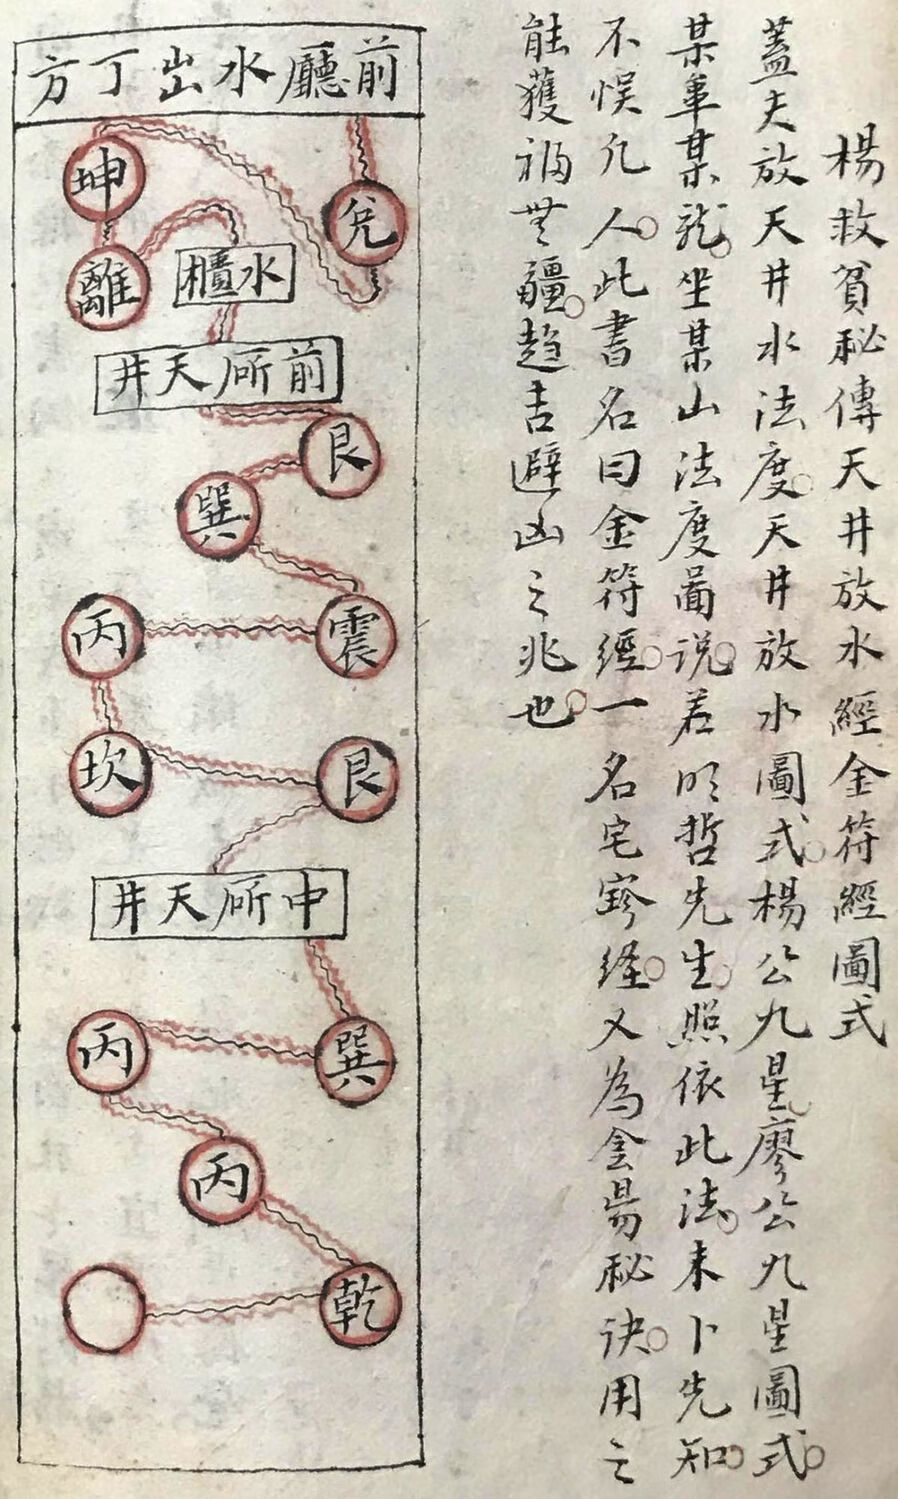 楊救貧秘傳天井放水經金符經圖式
蓋夫放天井水法度天井放水圖式楊公九星廖公九星圖式
某年某龍坐某山法度啚说若明哲先生照依此法未卜先知
不悮凡人此書名曰金符經一名宅寳経又為会昜秘诀用之
能獲福無疆趋吉避凶之兆也
前廳水出丁方
坤
兊
離
水櫃
前厛天井
艮
巽
丙
震
坎
艮
中厛天井
丙
巽
丙
乾